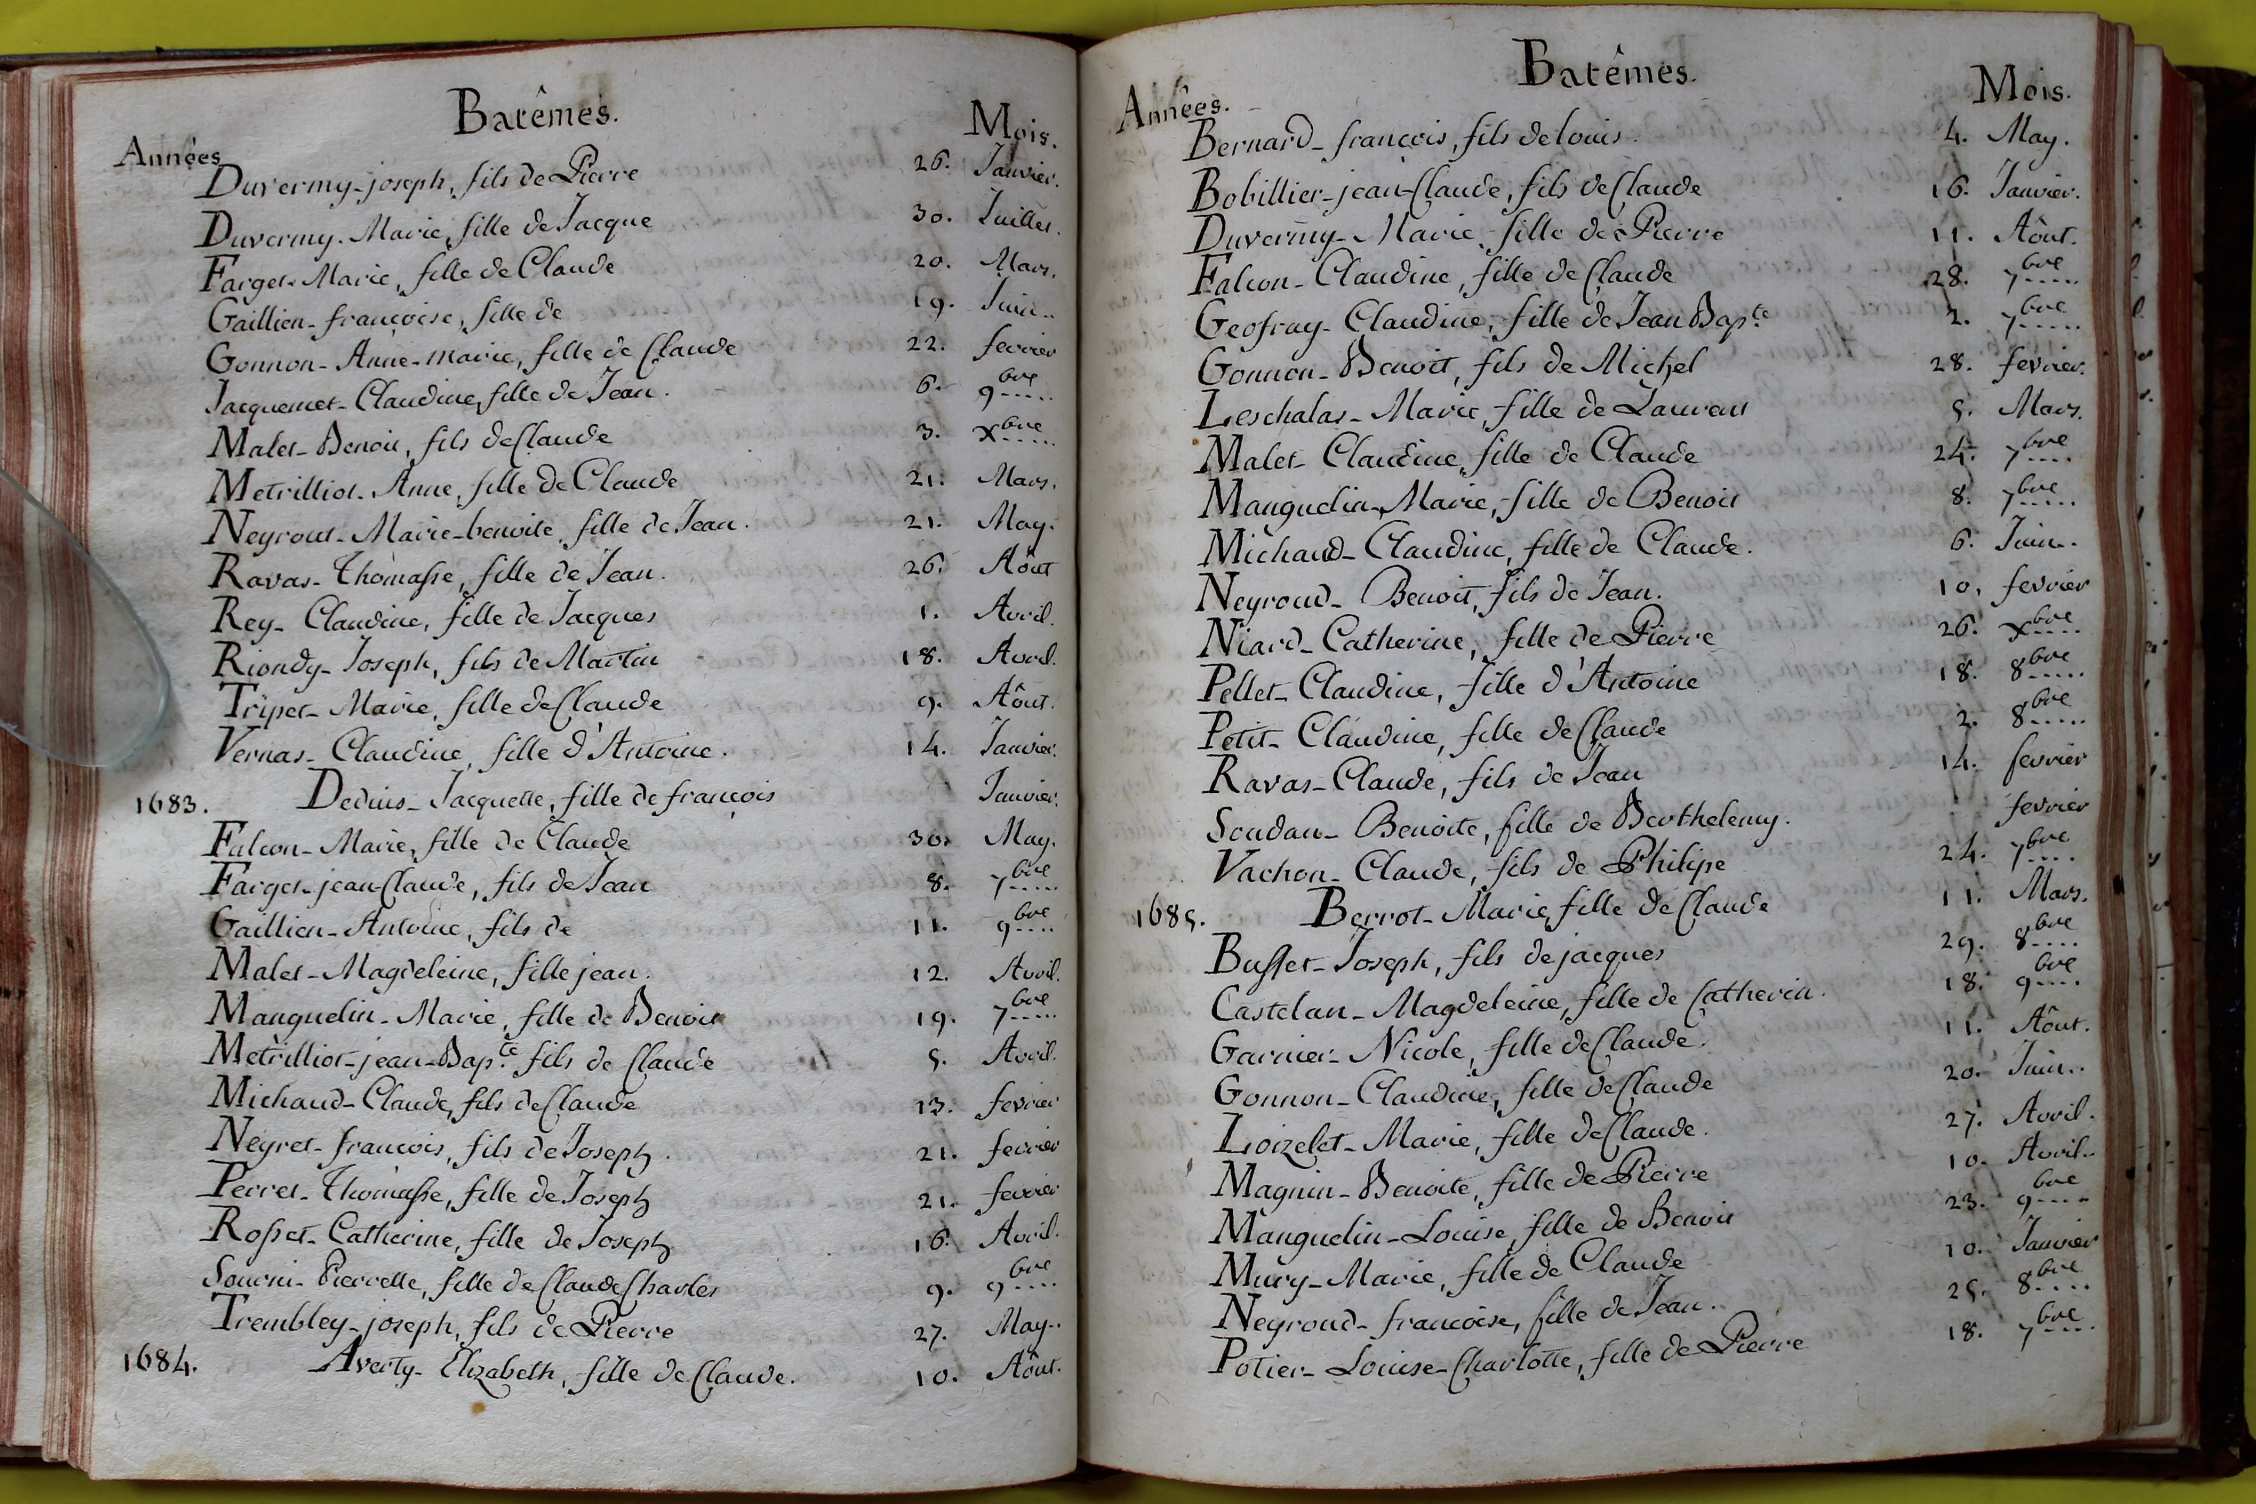 Batêmes.
Années Mois.
Duvermy-joseph, fils de Pierre 26. Janvier.
Duvermy. Marie, fille de Jacque 30. Juillet.
Farget. Marie, fille de Claude 20. Mars.
Gaillien-françoise, fille de 19. Juin..
Gonnon-Anne-marie, fille de Claude 22. fevrier
Jacquemet-Claudine, fille de Jean. 6. 9bre.....
Malet-Benoit, fils de Claude 3. Xbre.....
Metrilliot-Anne, fille de Claude 21. Mars.
Neyrout-Marie-benoite, fille de Jean. 21. May.
Ravas-Thomasse, fille de Jean. 26. Aôut
Rey-Claudine, fille de Jacques 1. Avril.
Riondy-Joseph, fils de Martin 18. Avril.
Tripet-Marie, fille de Claude 9. Aôut.
Vernas-Claudine, fille d'Antoine. 14. Janvier.
1683. Dedius-Jacquette, fille de françois Janvier.
Falcon-Marie, fille de Claude 30. May.
Farget-jean-Claude, fils de Jean 8. 7bre.....
Gaillien-Antoine, fils de 11. 9bre....
Malet-Magdeleine, fille jean. 12. Avril.
Manguelin-Marie, fille de Benoit 19. 7bre.....
Metrilliot-jean-Bapte. fils de Claude 5. Avril.
Michaud-Claude, fils de Claude 13. fevrier
Negret-francois, fils de Joseph. 21. fevrier
Perret-Thomasse, fille de Joseph 21. fevrier
Rosset-Catherine, fille de Joseph 16. Avril.
Souvni-Pierrette, fille de Claude Charles 9. 9bre....
Trembley-joseph, fils de Pierre 27. May..
1684. Averty-Elizabeth, fille de Claude. 10. Aôut.
Batêmes.
Années. Mois.
Bernard-françois, fils de louis. 4. May.
Bobillier-jean-Claude, fils de Claude 16. Janvier.
Duvermy-Marie, fille de Pierre 11. Aôut.
Falcon-Claudine, fille de Claude 28. 7bre.....
Geofray-Claudine, fille de Jean Bapte. 2. 7bre.....
Gonnon-Benoit, fils de Michel 28. fevrier.
Leschalas-Marie, fille de Laurent 5. Mars.
Malet-Claudine, fille de Claude 24. 7bre....
Manguelin-Marie, fille de Benoit 8. 7bre.....
Michaud-Claudine, fille de Claude. 6. Juin..
Neyroud-Benoit, fils de Jean. 10. fevrier
Niard-Catherine, fille de Pierre 26. Xbre....
Pellet-Claudine, fille d'Antoine 18. 8bre.....
Petit-Claudine, fille de Claude 2. 8bre.....
Ravas-Claude, fils de Jean 14. fevrier
Soudan-Benoite, fille de Berthelemy. fevrier
Vachon-Claude, fils de Philipe 24. 7bre....
1685. Berrot-Marie, fille de Claude 11. Mars.
Busset-Joseph, fils de jacques 29. 8bre....
Castelan-Magdeleine, fille de Catherin. 18. 9bre....
Garnier-Nicole, fille de Claude. 11. Aôut.
Gonnon-Claudine, fille de Claude 20. Juin..
Loizelet-Marie, fille de Claude. 27. Avril.
Magnin-Benoite, fille de Pierre 10. Avril..
Manguelin-Louise, fille de Benoit 23. 9bre....
Mury-Marie, fille de Claude 10. Janvier
Neyroud-françoise, fille de Jean. 25. 8bre....
Potier-Louise-Charlotte, fille de Pierre 18. 7bre....